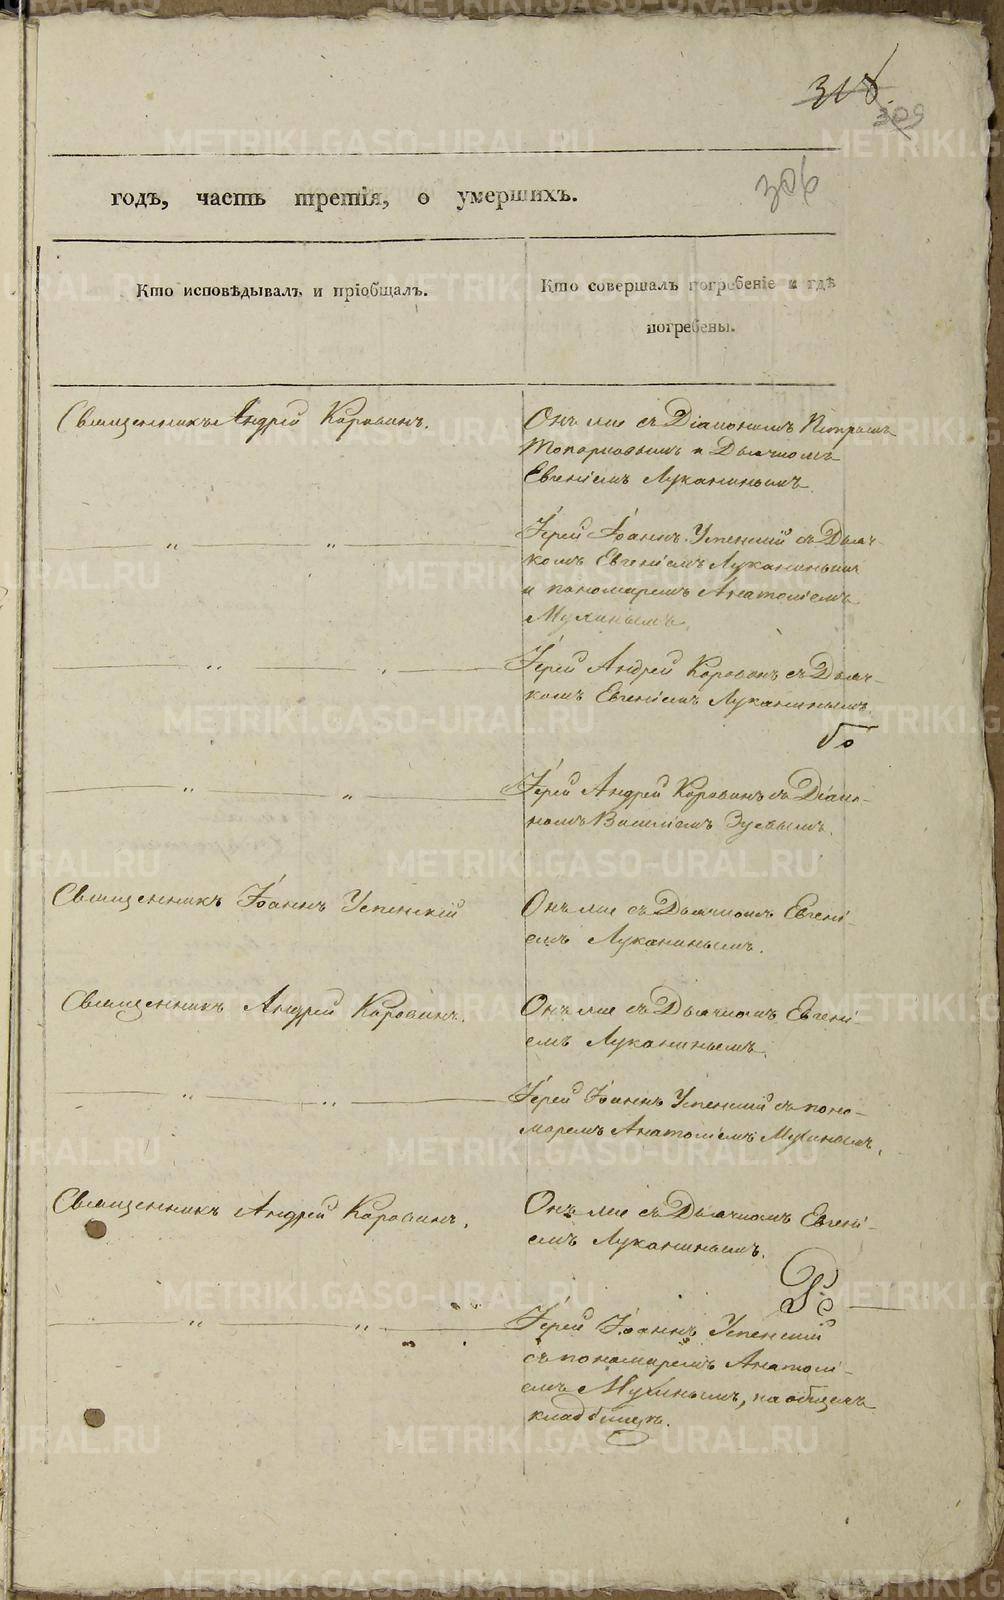 318.
309
306
годъ, часть третія, о умершихъ.
Кто исповѣдывалъ и пріобщалъ.
Кто совершалъ погребеніе и гдѣ
погребены.
Священникъ Андрей Коровинъ.
Онъ же съ Діакономъ Петромъ
Топорковымъ и Дьячкомъ
Евгеніемъ Луканинымъ
„ „
Іерей Іоаннъ Успенскій съ Дьяч-
комъ Евгеніемъ Луканинымъ
и пономаремъ Анатоліемъ
Мухинымъ.
„ „
Іерей Андрей Коровинъ съ Дьяч-
комъ Евгеніемъ Луканинымъ.
„ „
Іерей Андрей Коровинъ съ Діако-
номъ Василіемъ Зуевымъ.
Священникъ Іоаннъ Успенскій
Онъ же съ Дьячкомъ Евгені-
емъ Луканинымъ.
Священникъ Андрей Коровинъ.
Онъ же съ Дьячкомъ Евгені-
емъ Луканинымъ.
„ „
Іерей Іоаннъ Успенскій съ поно-
маремъ Анатоліемъ Мухинымъ.
Священникъ Андрей Коровинъ.
Онъ же съ Дьячкомъ Евгені-
емъ Луканинымъ.
„ „
Іерей Іоаннъ Успенскій
съ пономаремъ Анатолі-
емъ Мухинымъ, на общемъ
кладбищѣ.
METRIKI.GASO-URAL.RU